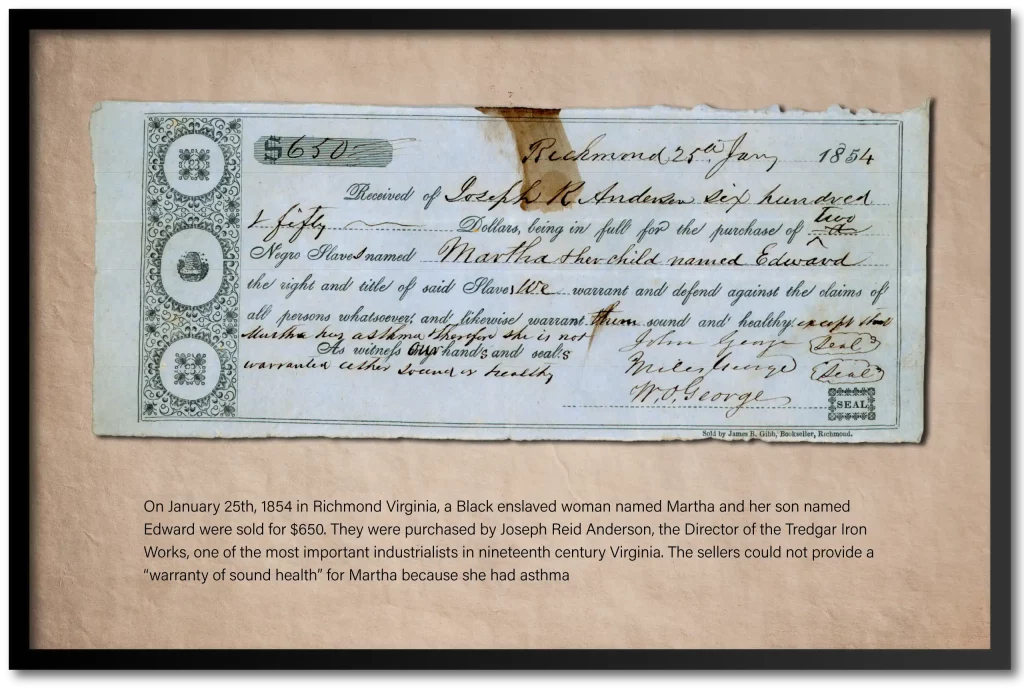 $650
Richmond 25th Jany 1854
Received of Joseph R Anderson six hundred
& fifty Dollars, being in full for the purchase of two
Negro Slaves named Martha & her child named Edward
the right and title of said Slaves We warrant and defend against the claims of
all persons whatsoever, and likewise warrant them sound and healthy, except that
Martha has asthma & therefore she is not
warranted either sound or healthy
As witness our hands and seals
John George Seal
Miles George Seal
W. O. George SEAL
Sold by James B. Gibb, Bookseller, Richmond.
On January 25th, 1854 in Richmond Virginia, a Black enslaved woman named Martha and her son named
Edward were sold for $650. They were purchased by Joseph Reid Anderson, the Director of the Tredgar Iron
Works, one of the most important industrialists in nineteenth century Virginia. The sellers could not provide a
“warranty of sound health” for Martha because she had asthma